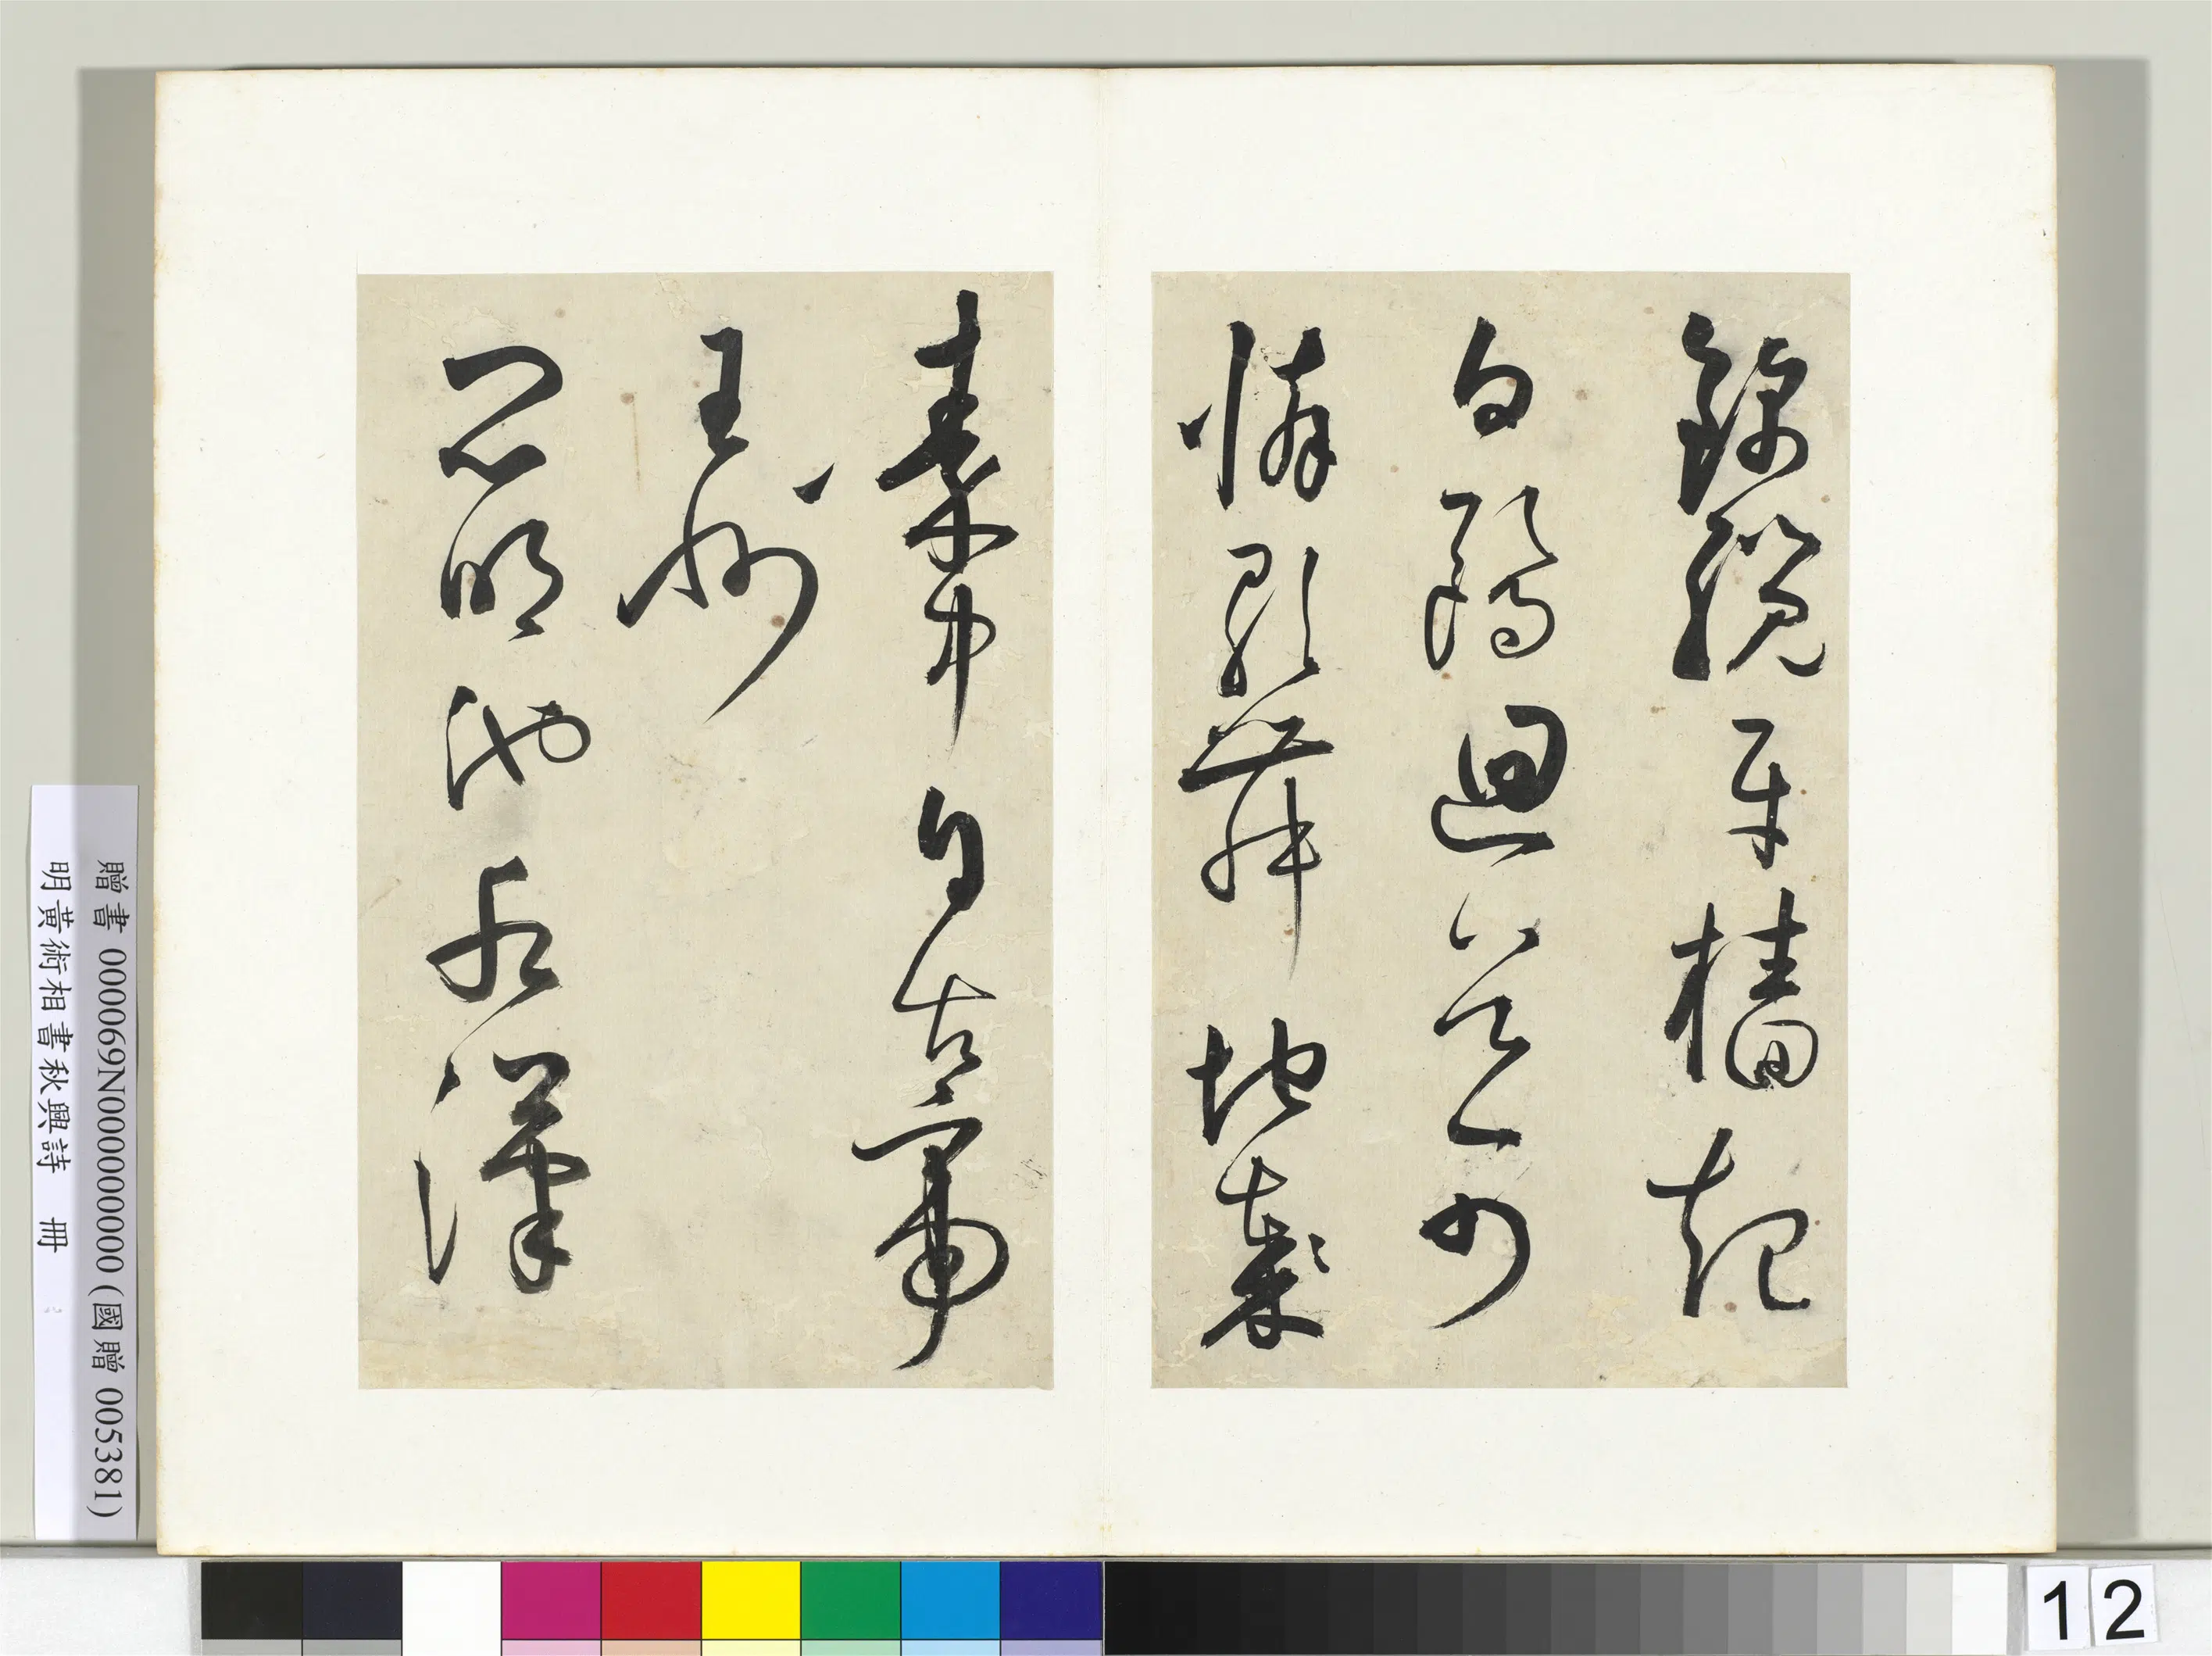 錦纜牙檣起
白鷗迴首可
憐歌舞地
秦中自古帝
王州
昆明池水漢
贈書 000069N000000000 (國贈 005381)
明黃術相書秋興詩 冊
12